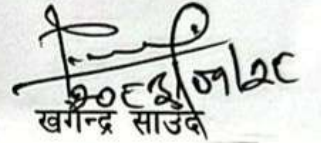 २०८३/०१/२८
खगेन्द्र साउद